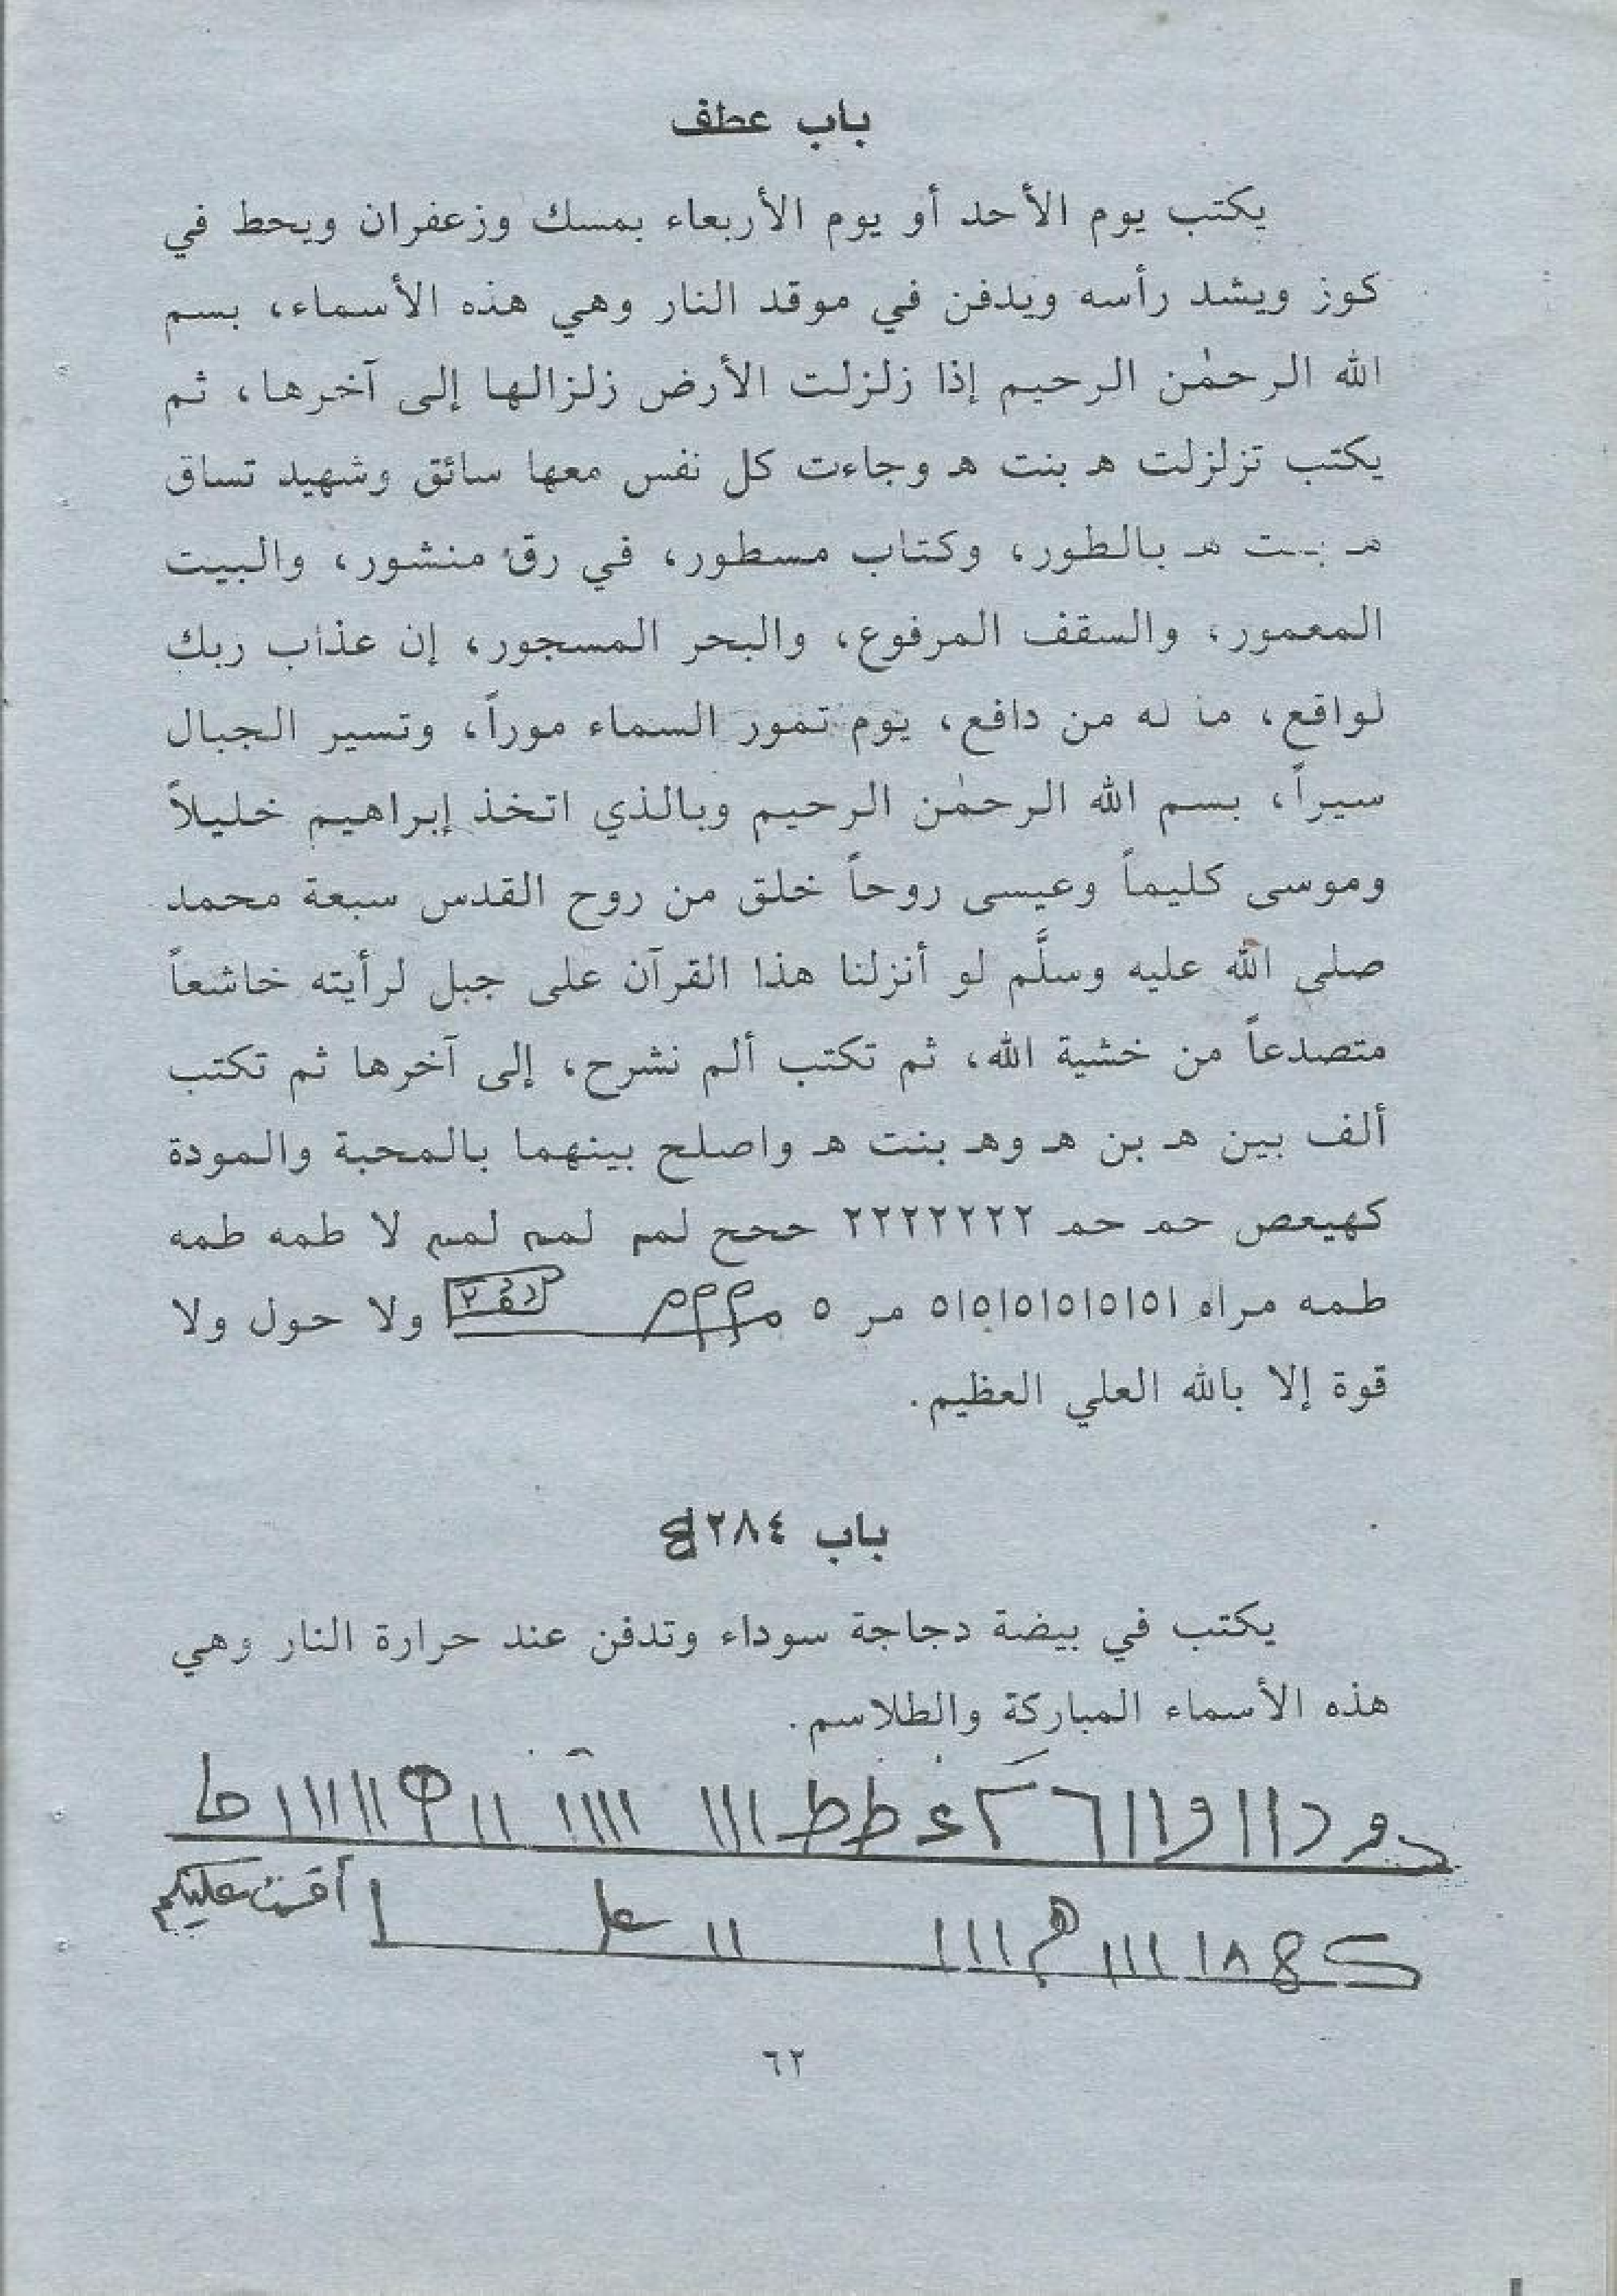 باب عطف
يكتب يوم الأحد أو يوم الأربعاء بمسك وزعفران ويحط في
كوز ويشد رأسه ويدفن في موقد النار وهي هذه الأسماء، بسم
الله الرحمٰن الرحيم إذا زلزلت الأرض زلزالها إلى آخرها، ثم
يكتب تزلزلت هـ بنت هـ وجاءت كل نفس معها سائق وشهيد تساق
هـ بنت هـ بالطور، وكتاب مسطور، في رق منشور، والبيت
المعمور، والسقف المرفوع، والبحر المسجور، إن عذاب ربك
لواقع، ما له من دافع، يوم تمور السماء موراً، وتسير الجبال
سيراً، بسم الله الرحمٰن الرحيم وبالذي اتخذ إبراهيم خليلاً
وموسى كليماً وعيسى روحاً خلق من روح القدس سبعة محمد
صلى الله عليه وسلَّم لو أنزلنا هذا القرآن على جبل لرأيته خاشعاً
متصدعاً من خشية الله، ثم تكتب ألم نشرح، إلى آخرها ثم تكتب
ألف بين هـ بن هـ وهـ بنت هـ واصلح بينهما بالمحبة والمودة
كهيعص حمـ حمـ ٢٢٢٢٢٢٢ ححح لمم لمم لمم لا طمه طمه
طمه مراه ٥١٥١٥١٥١٥١٥١ مر ٥ ولا حول ولا
قوة إلا بالله العلي العظيم.
باب ٢٨٤
يكتب في بيضة دجاجة سوداء وتدفن عند حرارة النار وهي
هذه الأسماء المباركة والطلاسم.
أقسمت عليكم
٦٢